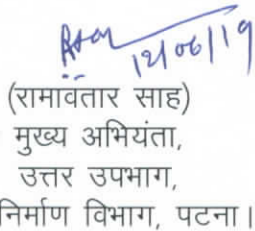 12/06/19
(रामावतार साह)
मुख्य अभियंता,
उत्तर उपभाग,
निर्माण विभाग, पटना।